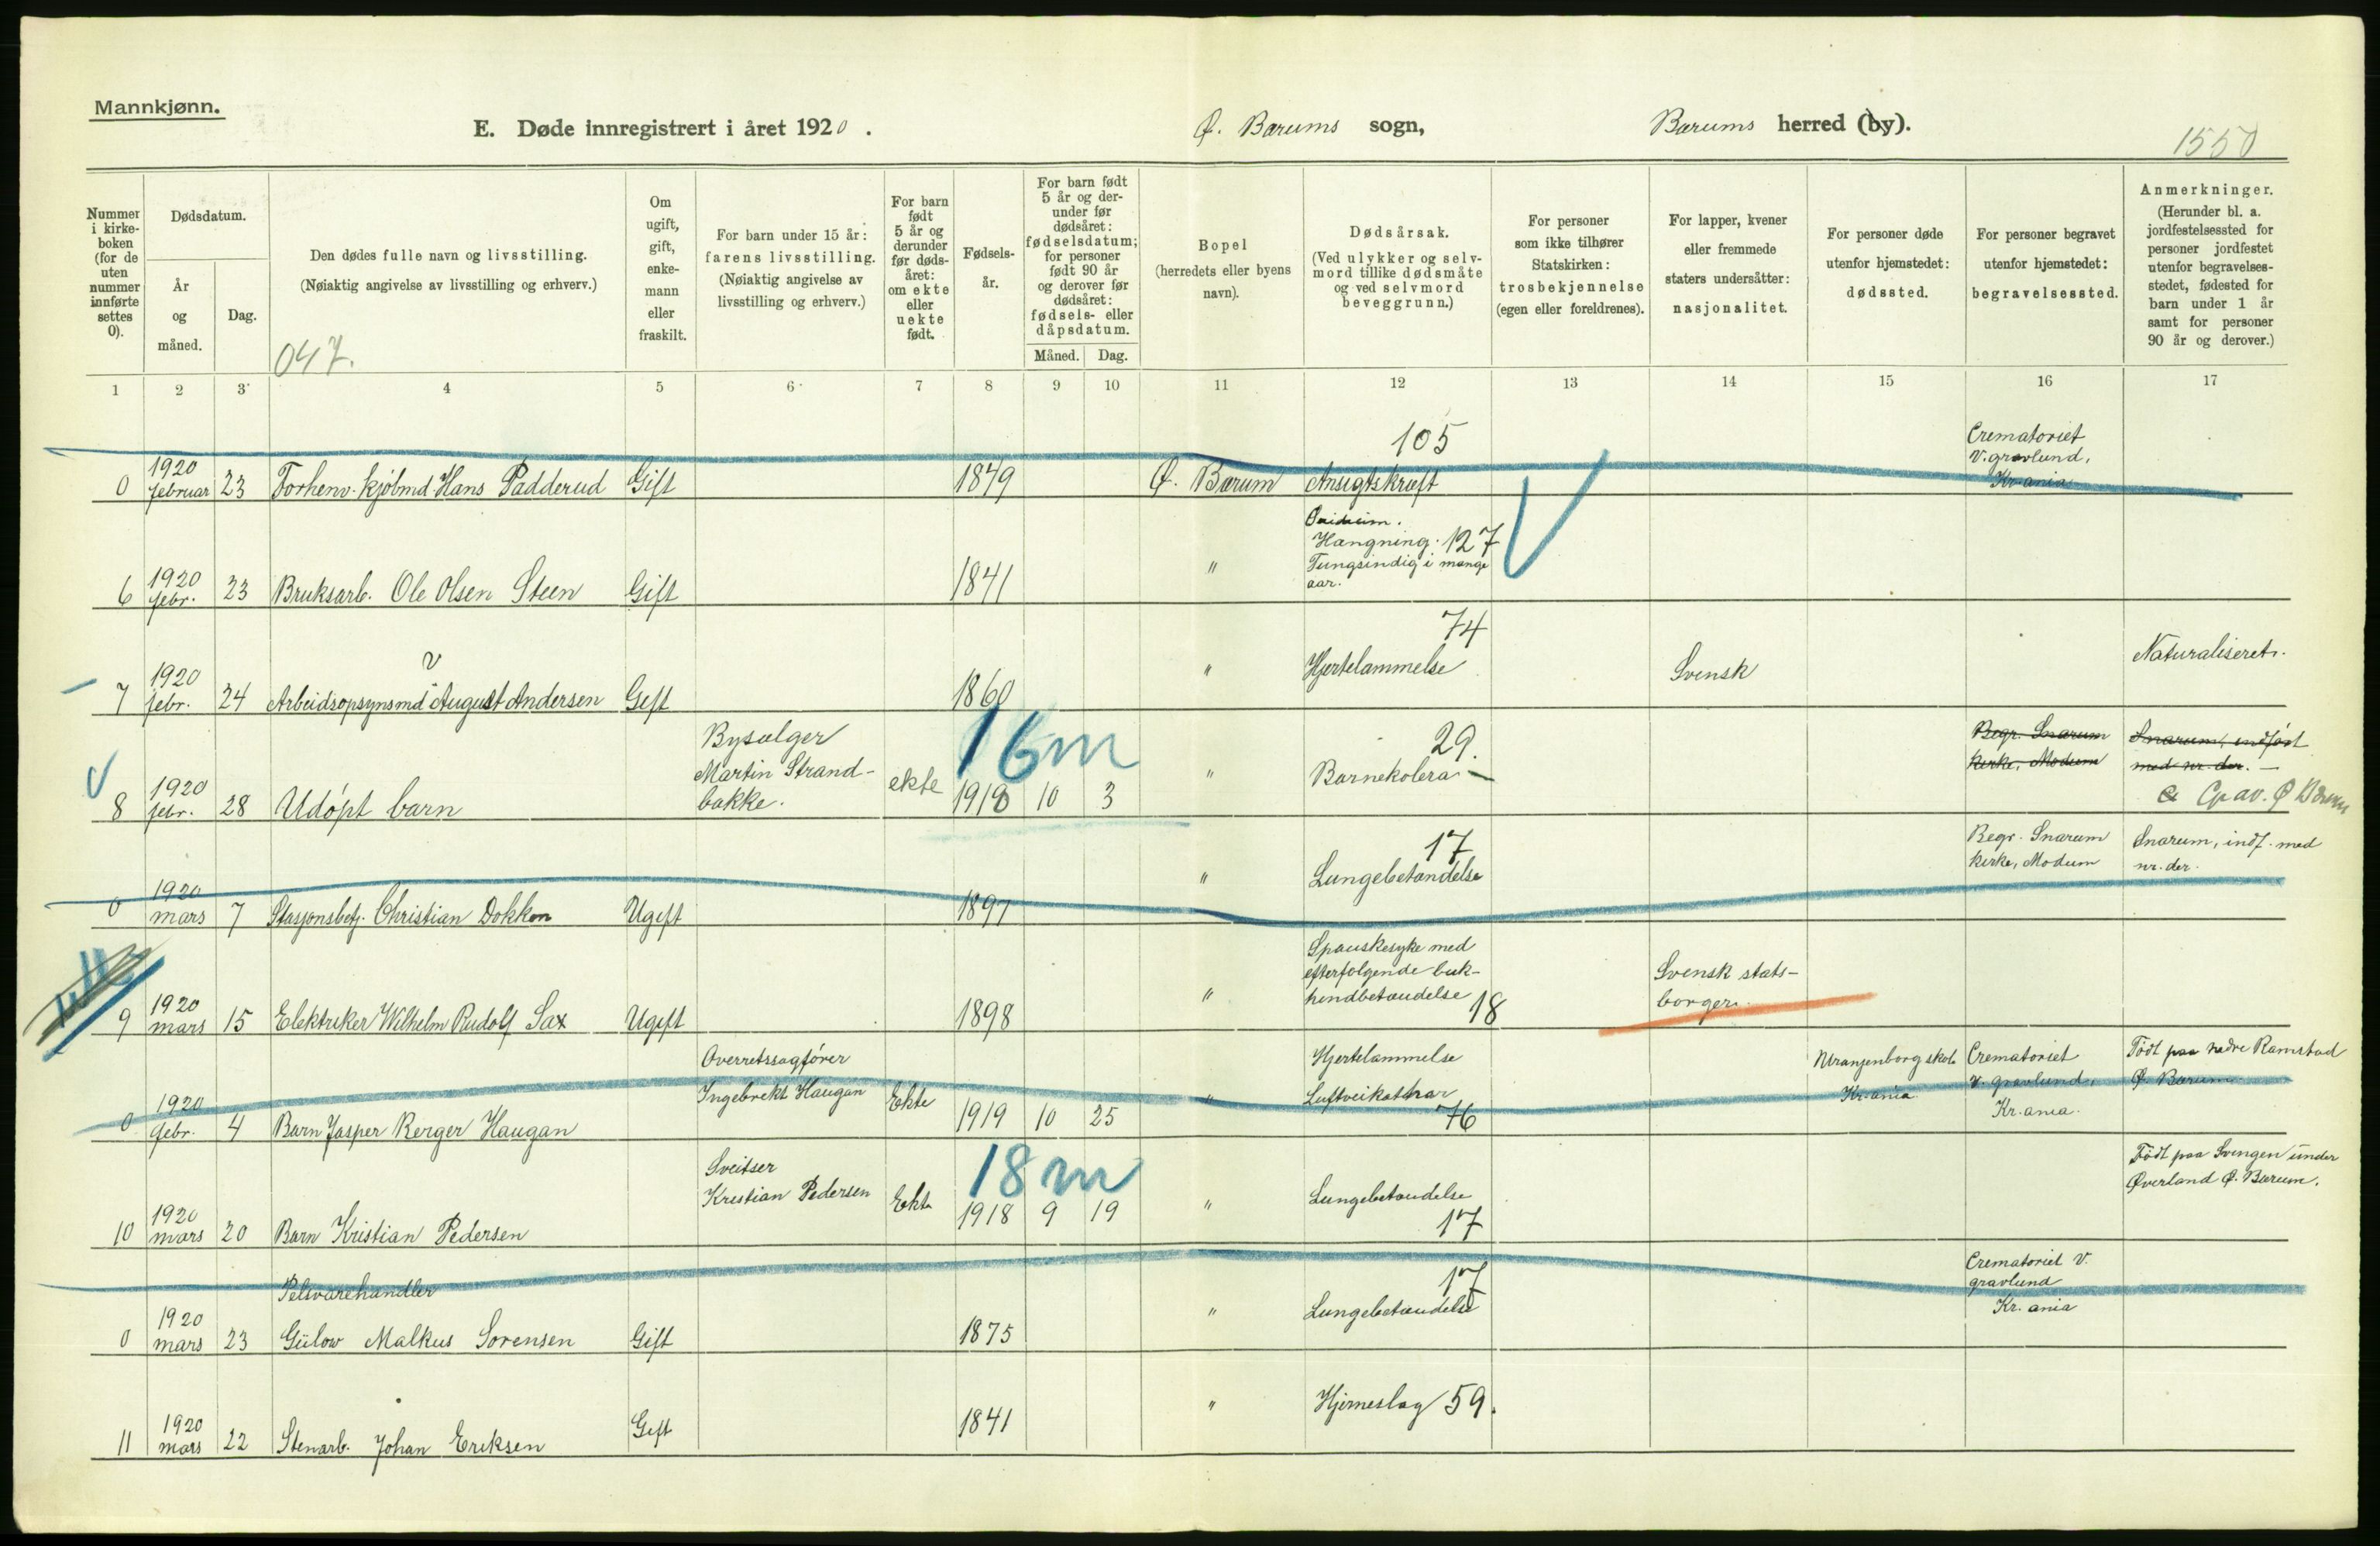 Mannkjønn.
E. Døde innregistrert i året 1920.
Ø. Bærums sogn,
Bærums herred (by).
1550
Nummer i kirke-boken (for de uten nummer innførte settes 0).
Dødsdatum.
År og måned.
Dag.
Den dødes fulle navn og livsstilling.
(Nøiaktig angivelse av livsstilling og erhverv.)
047.
Om ugift, gift, enke-mann eller fraskilt.
For barn under 15 år: farens livsstilling.
(Nøiaktig angivelse av livsstilling og erhverv.)
For barn født 5 år og derunder før døds-året: om ekte eller uekte født.
Fødsels-år.
For barn født 5 år og der-under før dødsåret: fødselsdatum; for personer født 90 år og derover før dødsåret: fødsels- eller dåpsdatum.
Måned.
Dag.
Bopel
(herredets eller byens navn).
Dødsårsak.
(Ved ulykker og selv-mord tillike dødsmåte og ved selvmord beveggrunn.)
For personer som ikke tilhører Statskirken: trosbekjennelse (egen eller foreldrenes).
For lapper, kvener eller fremmede staters undersåtter: nasjonalitet.
For personer døde utenfor hjemstedet: dødssted.
For personer begravet utenfor hjemstedet: begravelsessted.
Anmerkninger.
(Herunder bl. a. jordfestelsessted for personer jordfestet utenfor begravelses-stedet, fødested for barn under 1 år samt for personer 90 år og derover.)
1 2 3 4 5 6 7 8 9 10 11 12 13 14 15 16 17
0 1920 februar 23 Forhenv. kjøbmd Hans Padderud Gift 1849 Ø. Bærum Ansigtskræft 105 Crematoriet V. gravlund, Kr.ania
6 1920 febr. 23 Bruksarb. Ole Olsen Steen Gift 1841 " Hængning. 127 Tungsindig i mange aar.
7 1920 febr. 24 Arbeidsopsynsmd August Andersen Gift 1860 " Hjertelammelse 74 Svensk Naturaliseret.
8 1920 febr. 28 Udøpt barn Bysælger Martin Strand-bakke. ekte 16 m 1918 10 3 " Barnekolera 29. Begr. Snarum kirke, Modum Snarum, indført med nr. der. — Grav. Ø Bærum
0 1920 mars 7 Stasjonsbetj. Christian Dokken Ugift 1897 " Lungebetændelse 17 Begr. Snarum kirke, Modum Snarum, indf. med nr. der.
9 1920 mars 15 Elektriker Wilhelm Rudolf Sax Ugift 1898 " Spanskesyke med efterfølgende buk-hindbetændelse 18 Svensk stats-borger.
0 1920 febr. 4 Barn Jasper Berger Haugan Overretssagfører Ingebrekt Haugan Ekte 1919 10 25 " Hjertelammelse Luftveikatthar 76 Uranjenborg skole Kr.ania Crematoriet V. gravlund, Kr.ania. Født paa nedre Ramstad Ø. Bærum
10 1920 mars 20 Barn Kristian Pedersen Sveitser Kristian Pedersen Ekte 18 m 1918 9 19 " Lungebetændelse 17 Født paa Svingen under Øverland Ø. Bærum.
0 1920 mars 23 Pelsvarehandler Gülow Malkus Sørensen Gift 1875 " Lungebetændelse 17 Crematoriet V. gravlund Kr.ania
11 1920 mars 22 Stenarb. Johan Eriksen Gift 1841 " Hjerneslag 59.